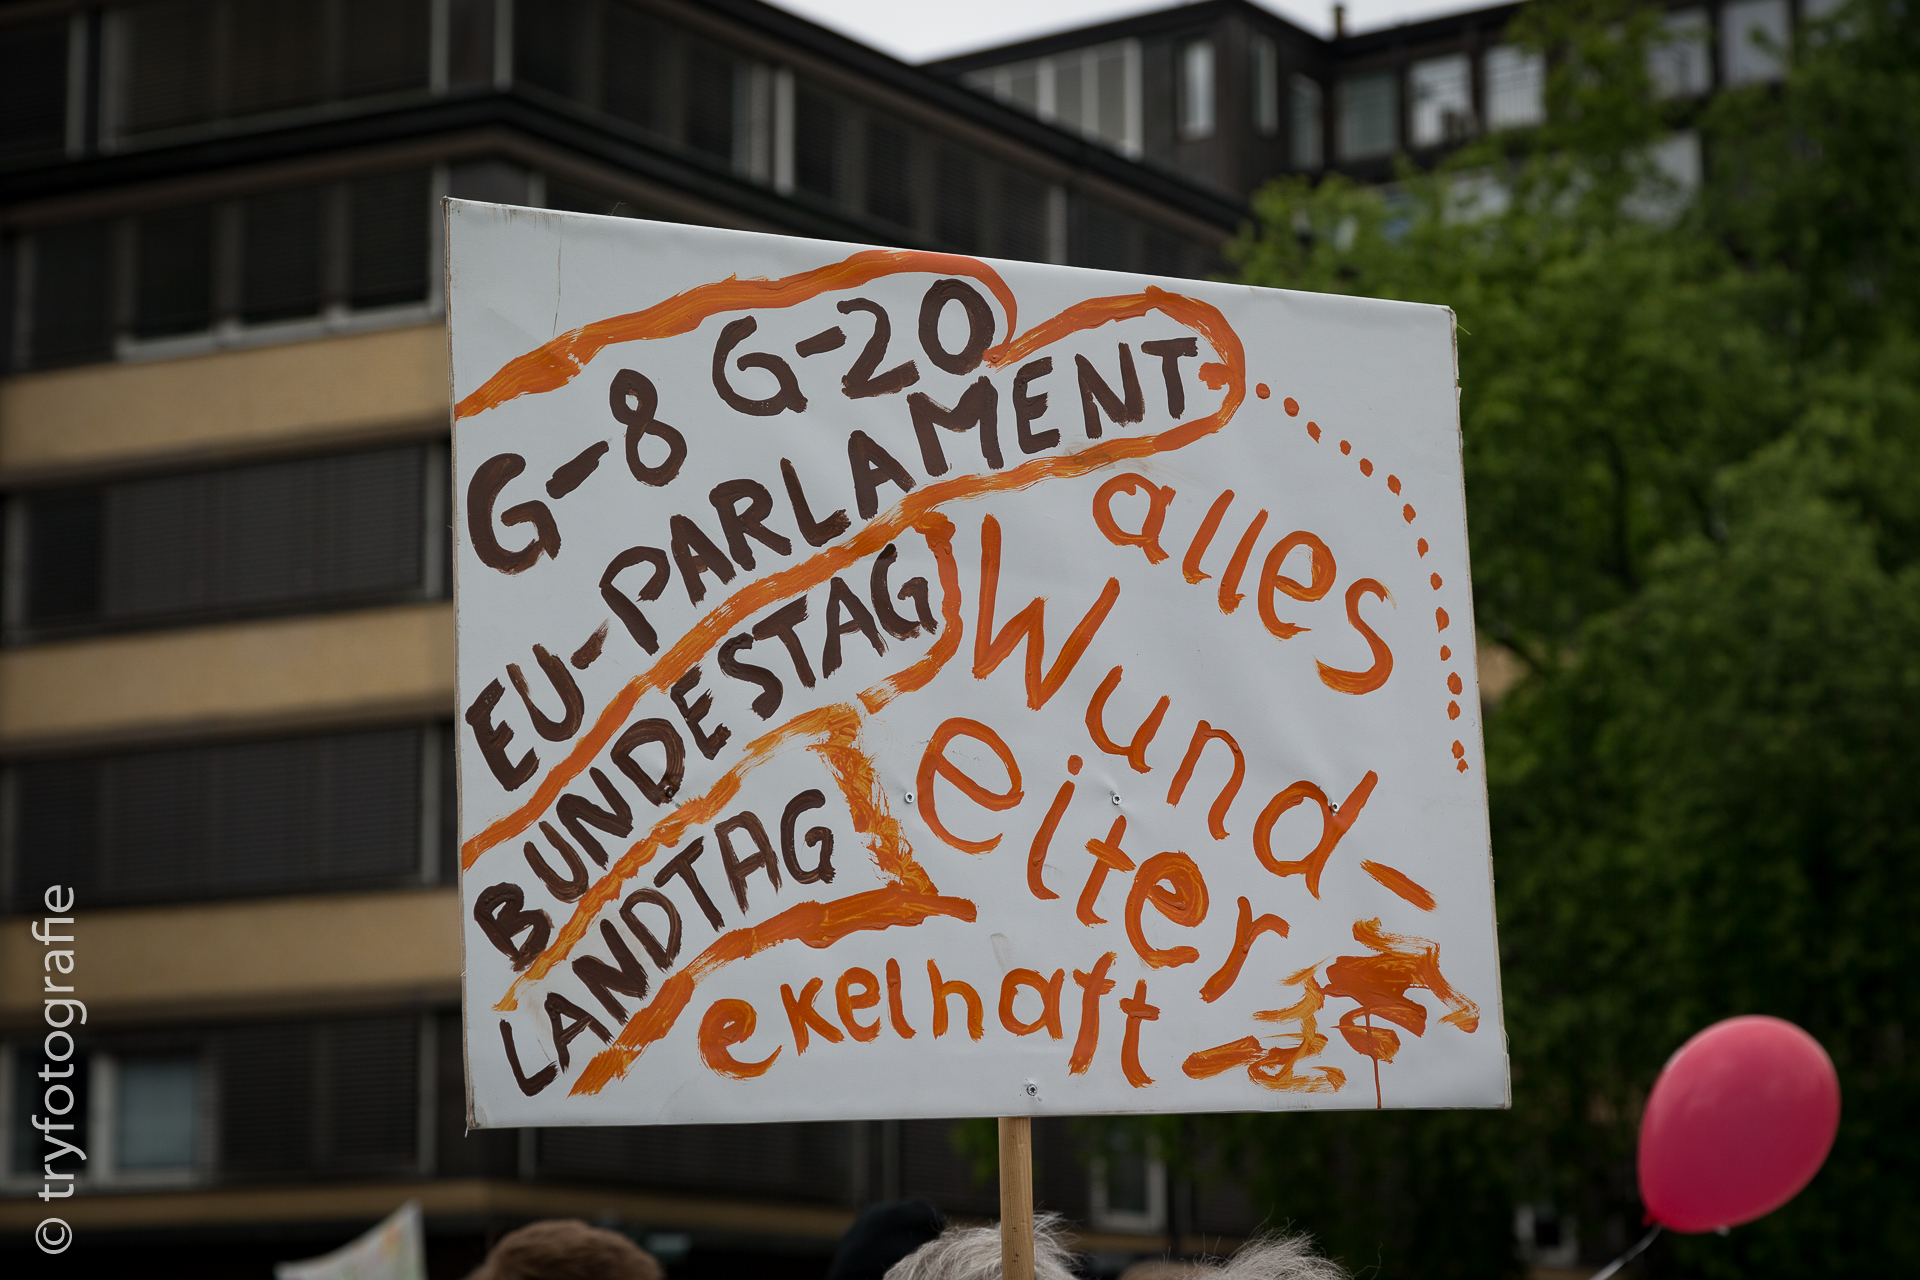 G-8 G-20
EU-PARLAMENT
BUNDESTAG
LANDTAG
alles
Wund-
eiter
ekelhaft
© tryfotografie